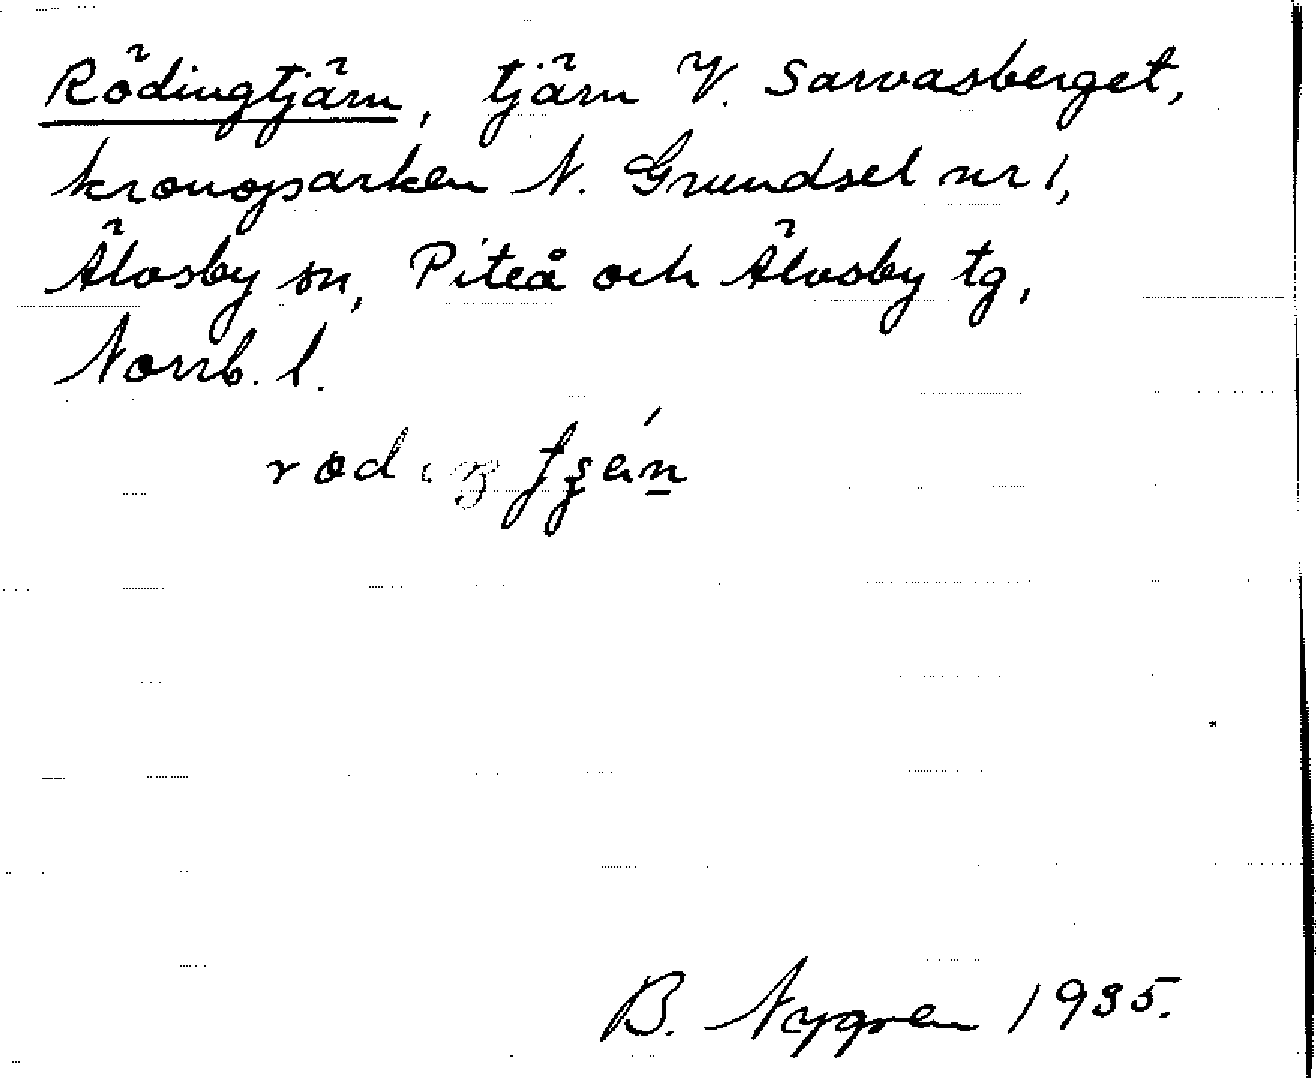 Rödingtjärn, tjärn V. Sarvasberget,
kronoparken N. Grundsel nr 1,
Älvsby sn, Piteå och Älvsby tg,
Norrb. l.
B. Nygren 1935.